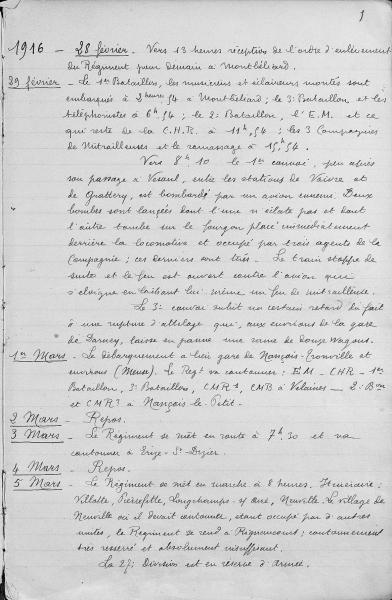 1
1916 — 28 février. Vers 13 heures réception de l'ordre d'enlèvement
du Régiment pour demain à Montbéliard.
29 février — Le 1er Bataillon, les musiciens et éclaireurs montés sont
embarqués à 2 heures 54 à Montbéliard ; le 3e Bataillon et les
téléphonistes à 6h 54 ; le 2e Bataillon, l'E.M. et ce
qui reste de la C.H.R. à 11h,54 ; les 3 Compagnies
de Mitrailleuses et le ramassage à 15h,54.
Vers 8h 10 le 1er convoi, peu après
son passage à Vesoul, entre les stations de Vaivre et
de Grattery, est bombardé par un avion ennemi. Deux
bombes sont lancées dont l'une n'éclate pas et dont
l'autre tombe sur le fourgon placé immédiatement
derrière la locomotive et occupé par trois agents de la
Compagnie ; ces derniers sont tués. Le train stoppe de
suite et le feu est ouvert contre l'avion qui
s'éloigne en lâchant lui même un feu de mitrailleuse.
Le 3e convoi subit un certain retard du fait
à une rupture d'attelage qui, aux environs de la gare
de Darney, laisse en panne une rame de douze wagons.
1er Mars — Le débarquement a lieu gare de Nançois-Tronville et
environs (Meuse). Le Regt va cantonner : EM — CHR — 1er
Bataillon, 3e Bataillon, CMR1, CMB à Velaines — 2e Bon
et CMR2 à Nançois-le-Petit.
2 Mars — Repos.
3 Mars — Le Régiment se met en route à 7h 30 et va
cantonner à Erize-St-Dizier.
4 Mars — Repos.
5 Mars — Le Régiment se met en marche à 8 heures, Itinéraire :
Villotte, Pierrefitte, Longchamps s/ Aire, Neuville. Le village de
Neuville où il devait cantonner, étant occupé par d'autres
unités, le Régiment se rend à Rignaucourt ; cantonnement
très resserré et absolument insuffisant.
La 27e Division est en réserve d'armée.